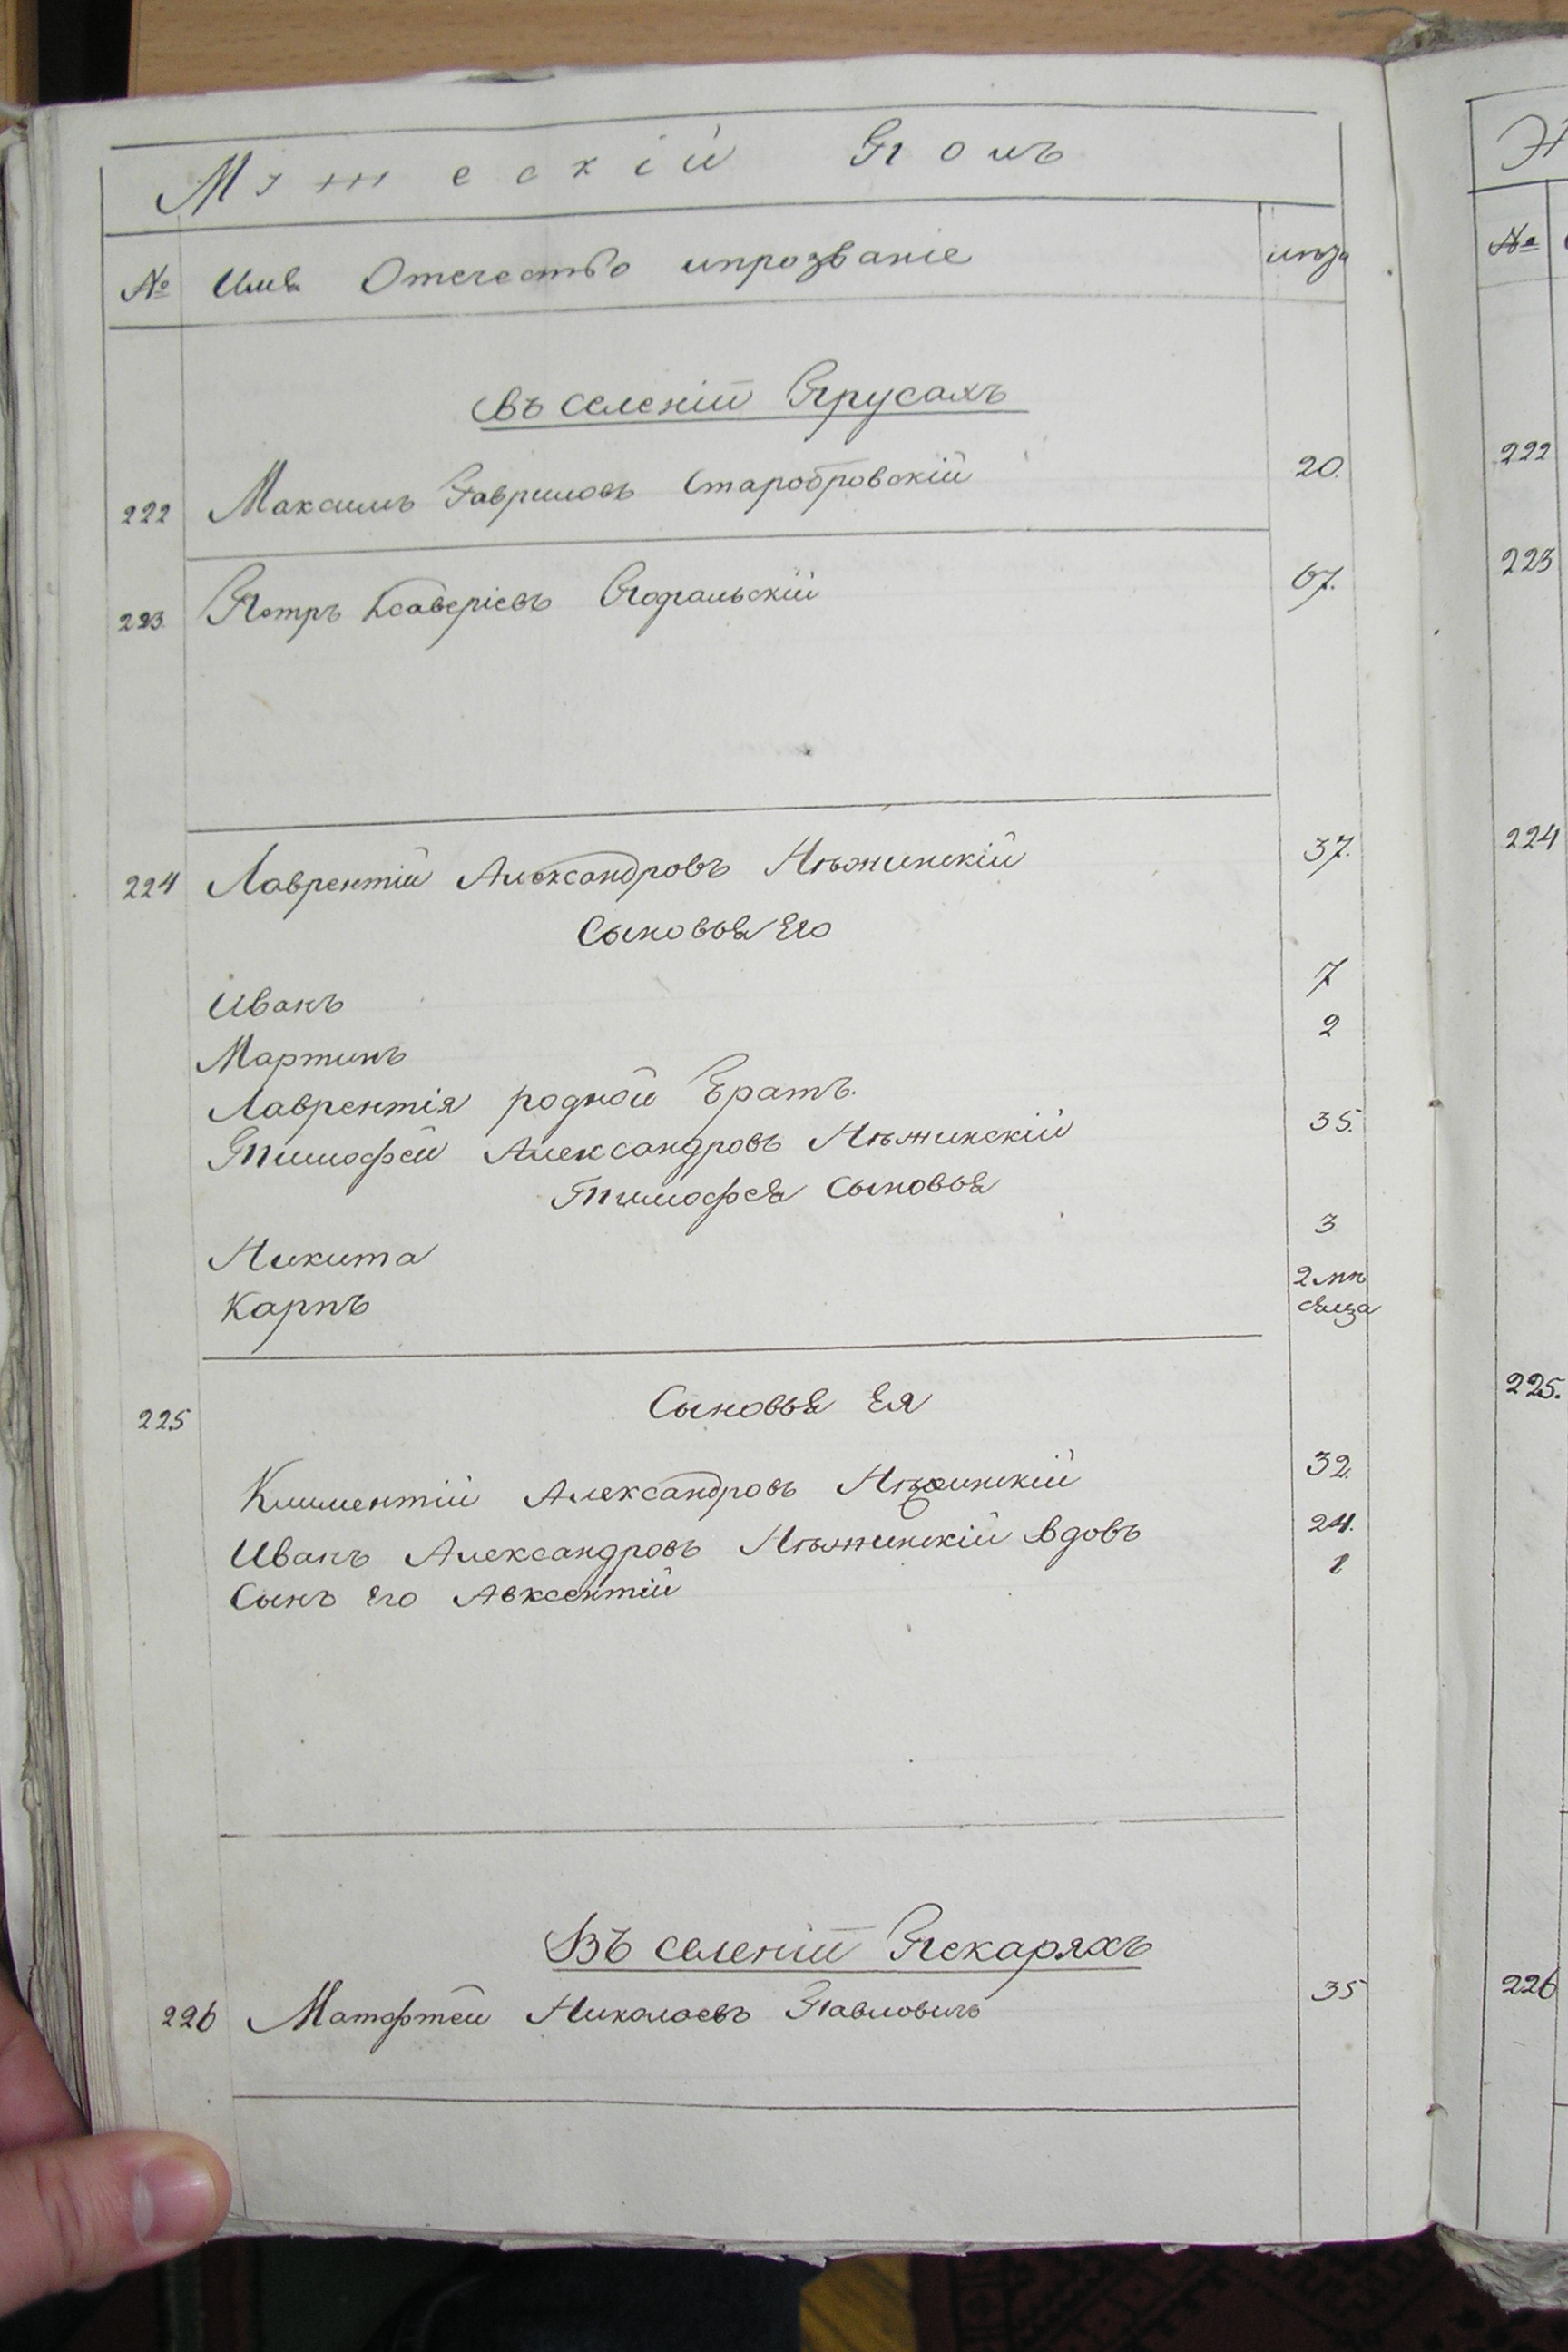 Мужескій Полъ
№ Имя Отечество ипрозваніе лѣта
Въ селеніи Ярусахъ
222 Максимъ Гавриловъ Старобровскій 20.
223. Петръ Ксаверіевъ 67.
224 Лаврентій Александровъ Нѣжинскій 37.
Сыновья Его
Иванъ 7
Мартинъ 2
Лаврентія родной Братъ.
Тимофей Александровъ Нѣжинскій 35.
Тимофея Сыновья
Никита 3
Карпъ 2 мѣ
сяца
225 Сыновья Ея
Климентій Александровъ Нѣжинскій 32.
Иванъ Александровъ Нѣжинскій вдовъ 24.
Сынъ Его Авксентій 1
Въ селеніи Пекаряхъ
226 Матфтей Николаевъ Павловичъ 35
№
222
223
224
225.
226